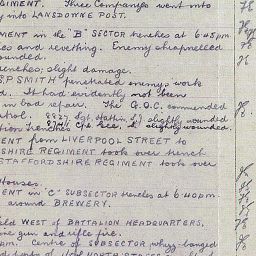 GIMENT. Three Companies went into
y into LANSDOWNE POST.
MENT in the "B" SECTOR trenches at 6.45pm
es and revetting. Enemy shrapnelled
ounded.
enches, slight damage.
S.P SMITH penetrated enemy's work
d. It had evidently not been
in bad repair. The G.O.C. commended
trol. 8827 Sgt. slightly wounded.
tion trenches Cpl. Lee, H. slightly wounded.
ENT from LIVERPOOL STREET to
SHIRE REGIMENT took over trench
STAFFORDSHIRE REGIMENT took over
Houses.
ENT in "C" SUBSECTOR trenches at 6.40pm
around BREWERY.
WEST of BATTALION HEADQUARTERS,
ne gun and rifle fire.
pm. Centre of SUBSECTOR whizz-banged